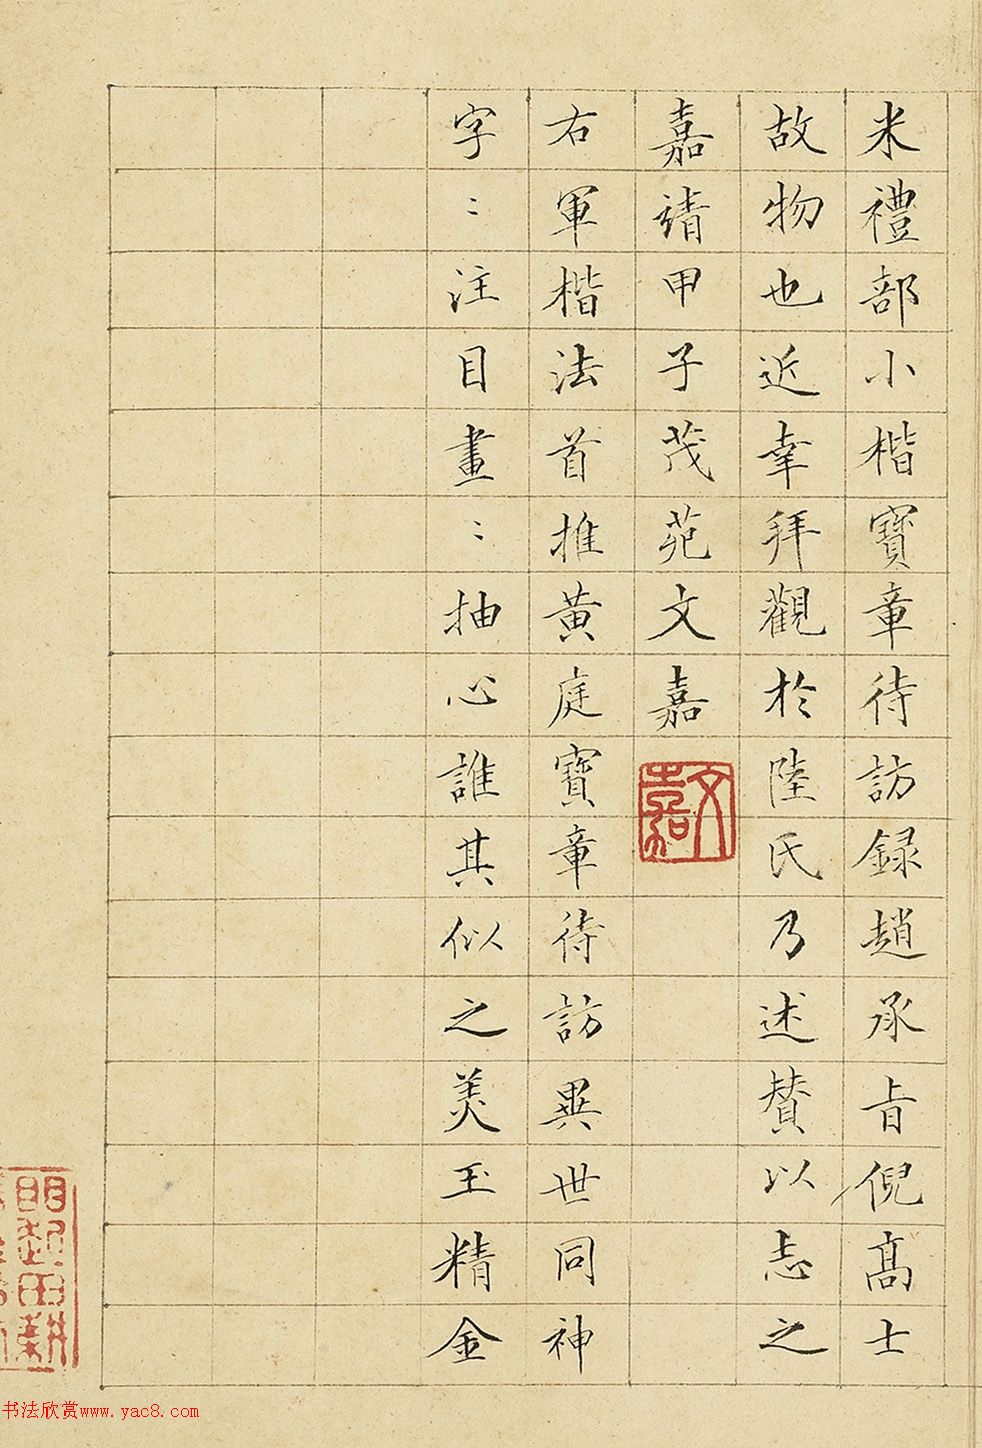 米禮部小楷寶章待訪録趙承旨倪髙士
故物也近幸拜觀於陸氏乃述賛以志之
嘉靖甲子茂苑文嘉
文嘉
右軍楷法首推黄庭寶章待訪異世同神
字〻注目畫〻抽心誰其似之美玉精金
书法欣赏www.yac8.com